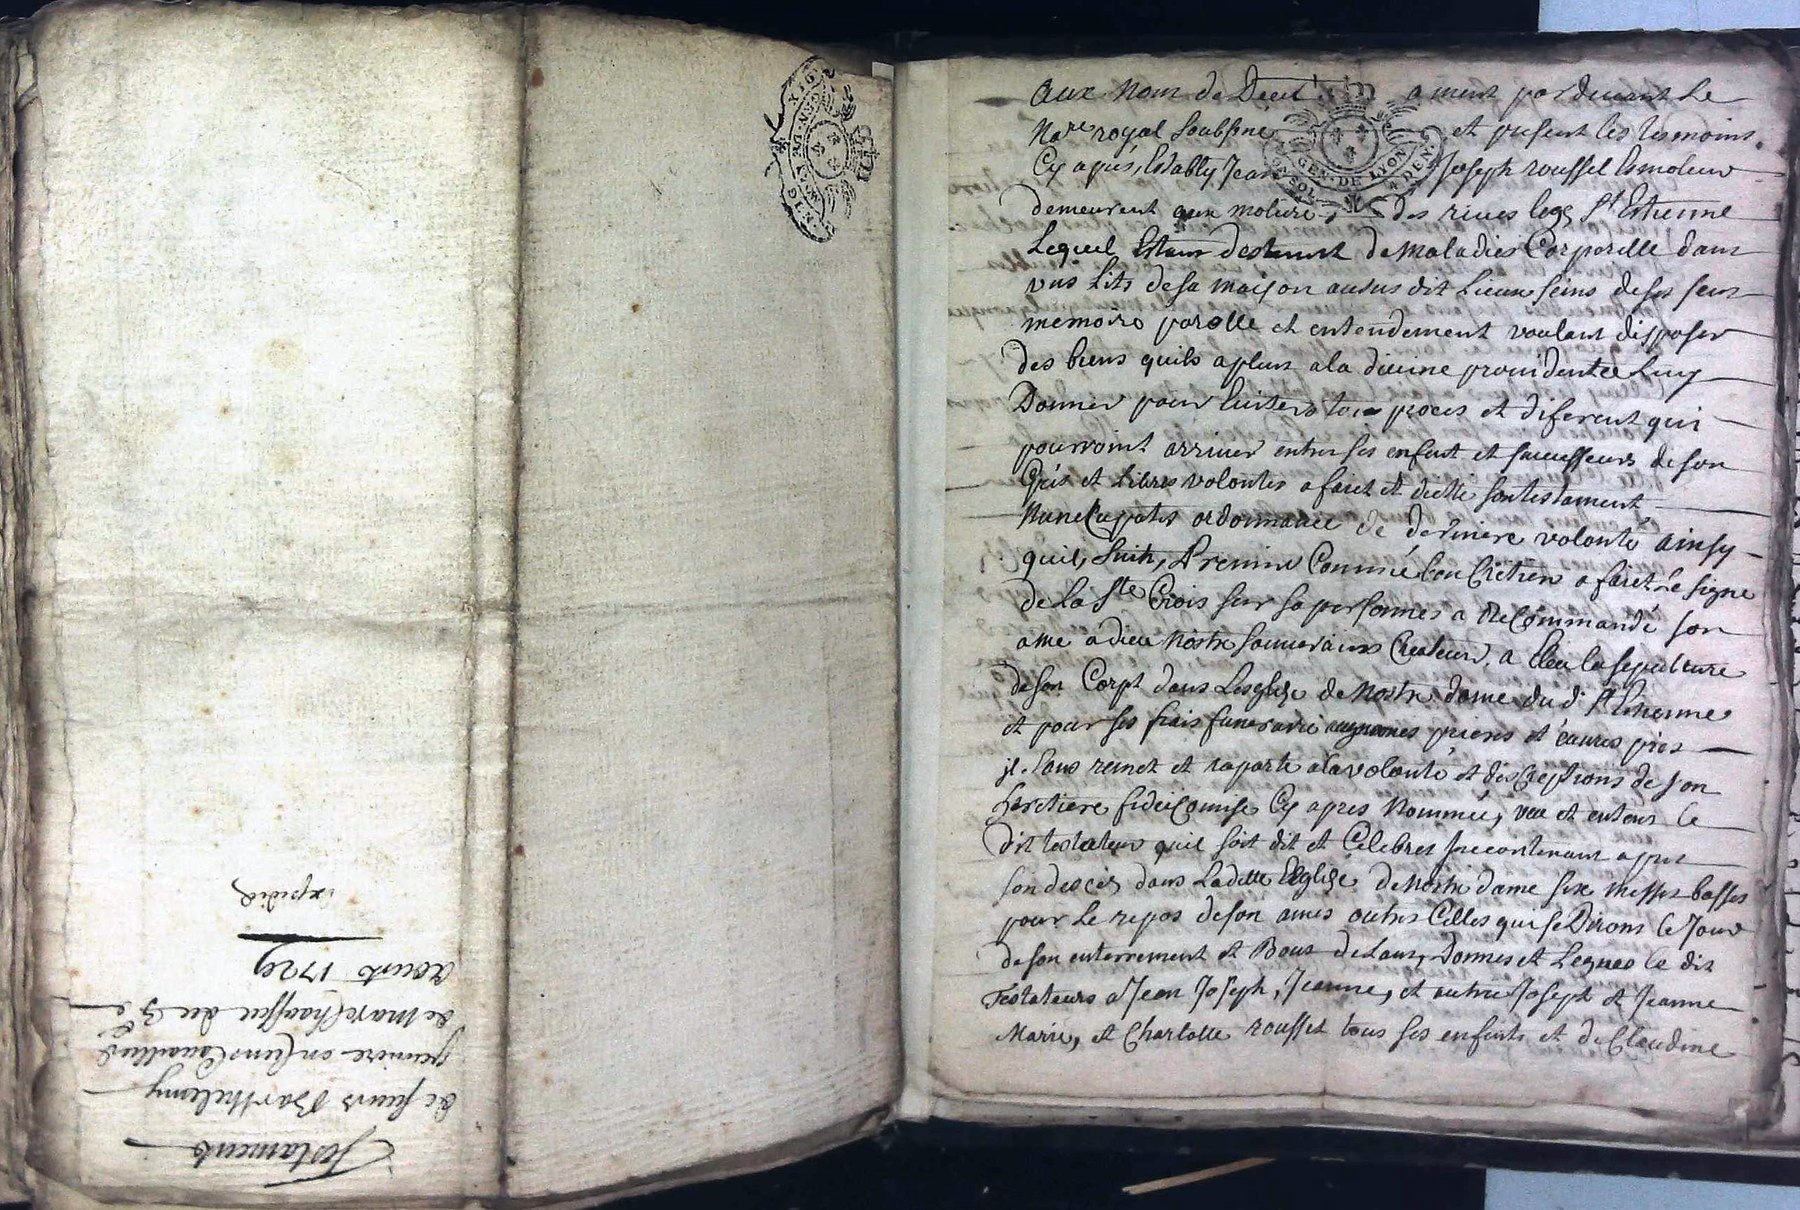 Testament
de sieur Barthelemy
ancien Cavallier
de Marechaussee du 3e
aoust 1729
expedié
GEN · DE LYON
4 DEN ·
Aux Nom de Dieu amen par devant Le
Nare royal soubsine et presens les tesmoins
Cy apres, Estably Jean Joseph roussel Esmoleur
demeurent aux molieres des rives lege St Estienne
Lequel Estant destenut de Maladies Corporelle dans
uns Lits de sa maison au sus dit Lieux seins de ses sens
memoire parolle et entendement voulant disposer
des biens quils a plus a la divine providentce Luy
Donner pour Eviters tous proces et diferent qui
pourroint arriver entre ses enfent et successeurs de son
Grés et libres volontes a faict et dictte son testament
Nuncupatis ordonnance de derniere volonté ainsy
quil, Suit, Premier Comme bon Cretien a faict Le signe
de la Ste Crois sur sa personnes a Recommandé son
ame a dieu Nostre souverains Createur, a Eleu la sepulture
de son Corpt dans Lesglize de Nostre dame dud St Estienne
et pour ses frais funeraire aumones prieres et œuvres pies
il sans remet et raporte a la volonté et discreptions de son
heretiere fideicomise Cy apres Nommée, veu et entens le
dit testateur quil soit dit et Celebres Incontenant apres
son desces dans Laditte Eeglize de Nostre dame six Messes basses
pour Le repos de son ames outres Celles qui se Dirons le Jour
de son enterrement et Bout de Lans, Donnes et Legues le dit
Testateurs a Jean Joseph, Jeanne, et autre Joseph et Jeanne
Marie, et Charlotte roussel tous ses enfents et de Claudine